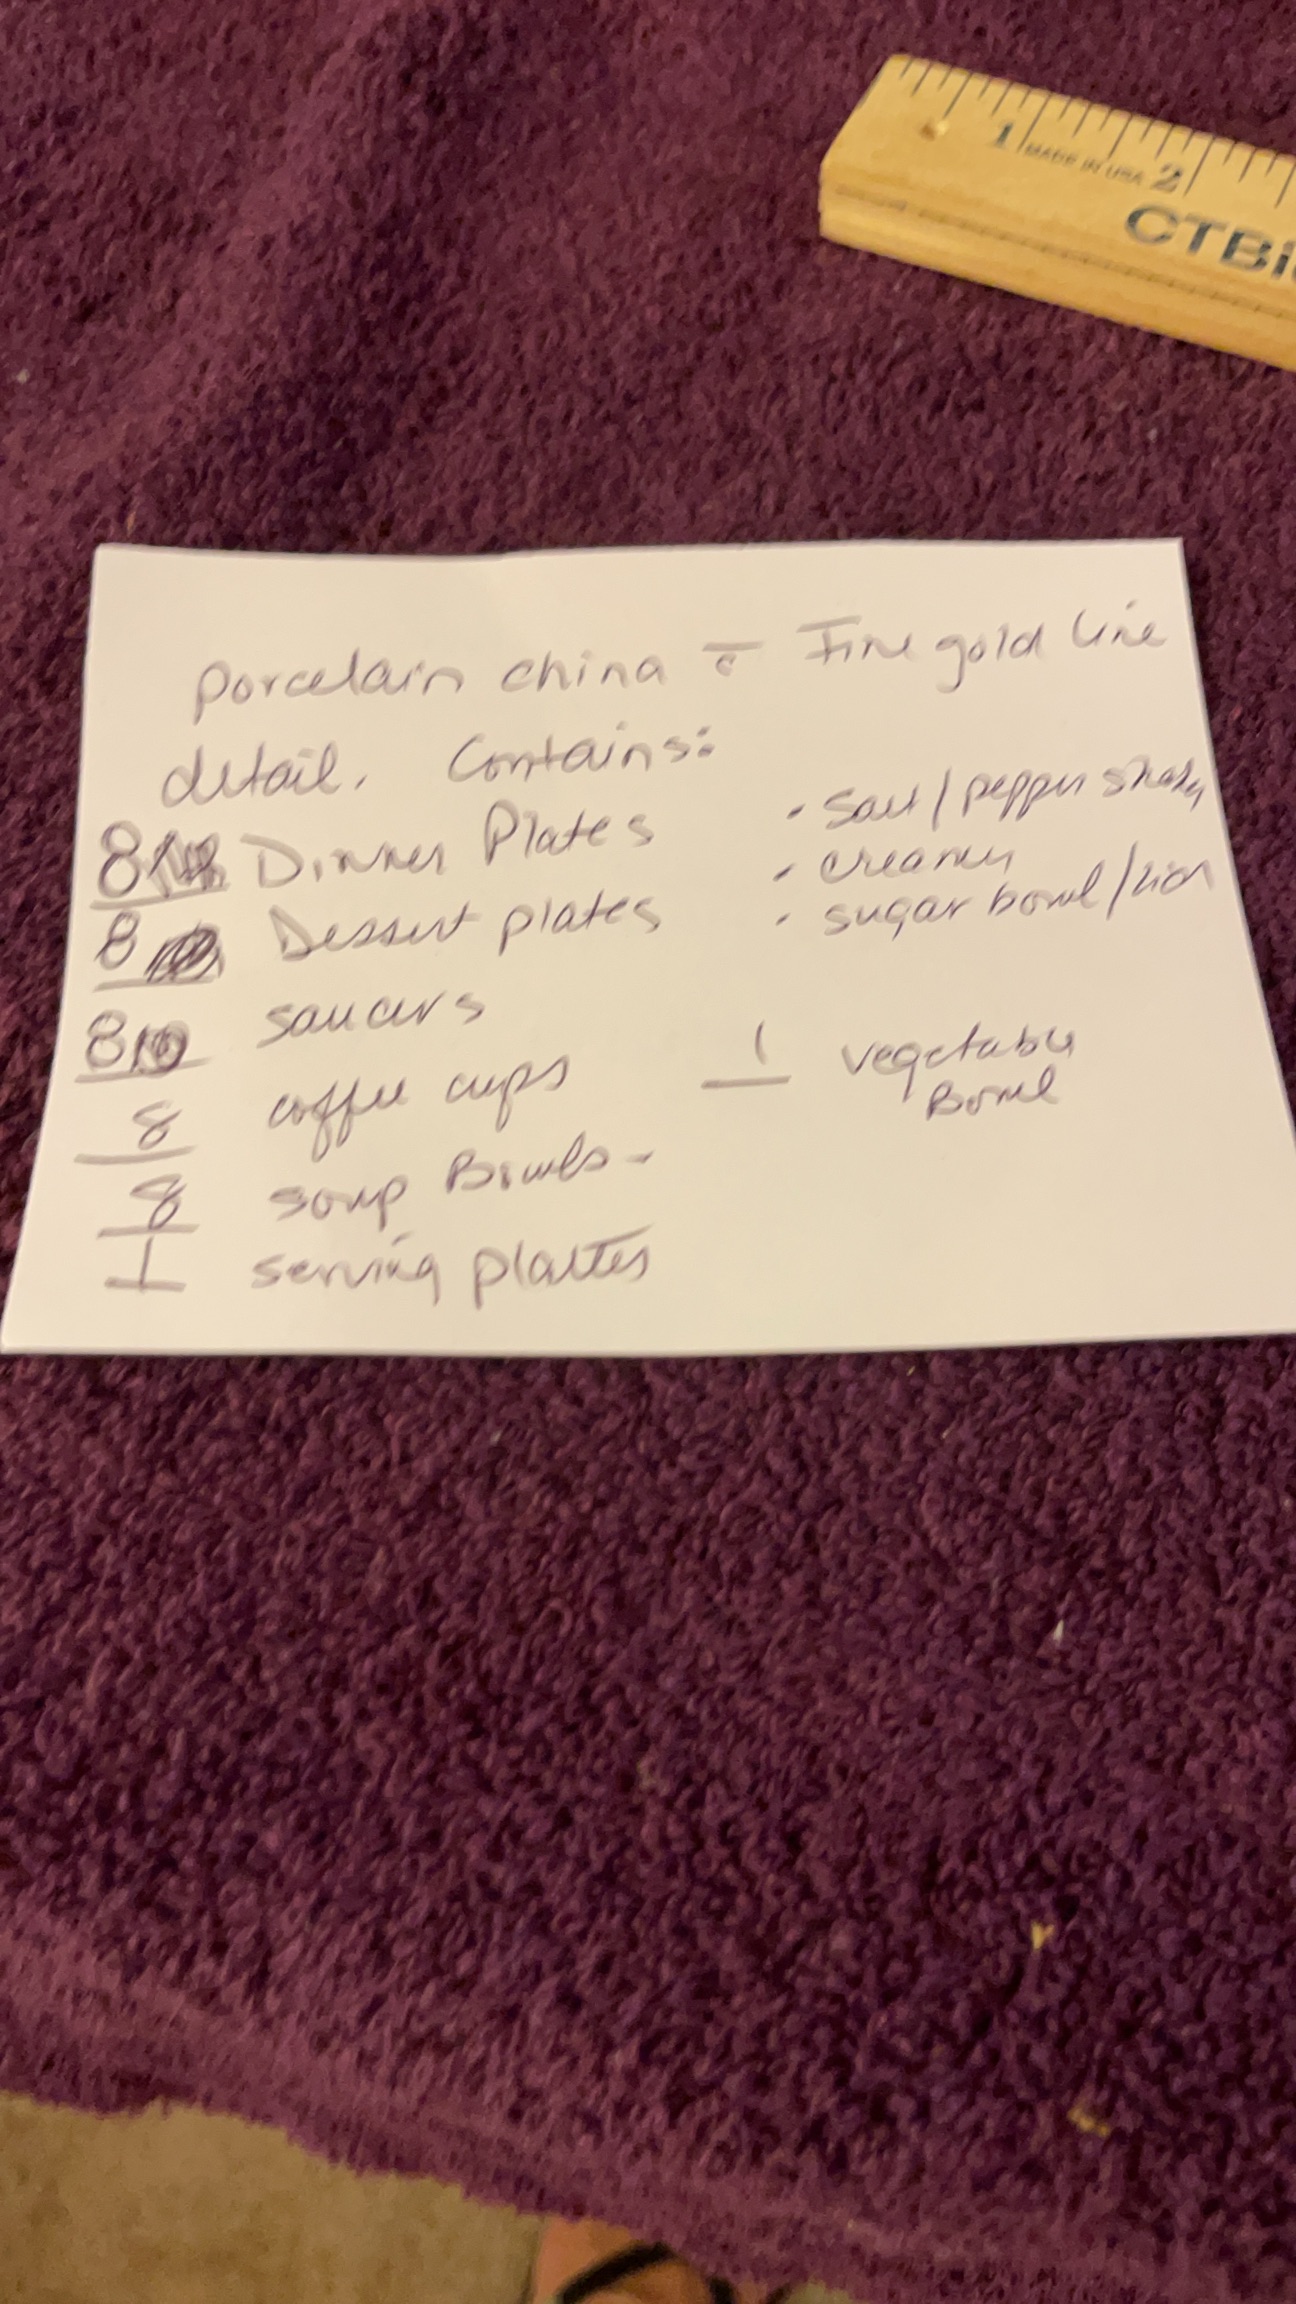 1 MADE IN USA 2
CTBi
porcelain china c̄ Fine gold line
detail. Contains:
8 Dinner Plates
8 Dessert plates
8 saucers
8 coffee cups
8 soup Bowls -
1 serving platter
• Salt / pepper shaker
• creamer
• sugar bowl / lid
1 vegetable
Bowl